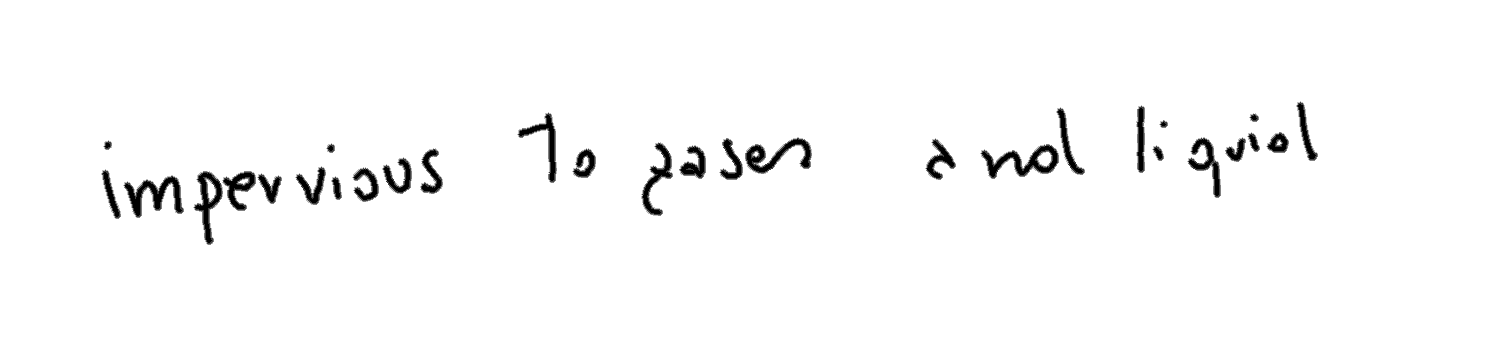 impervious To gases and liquid